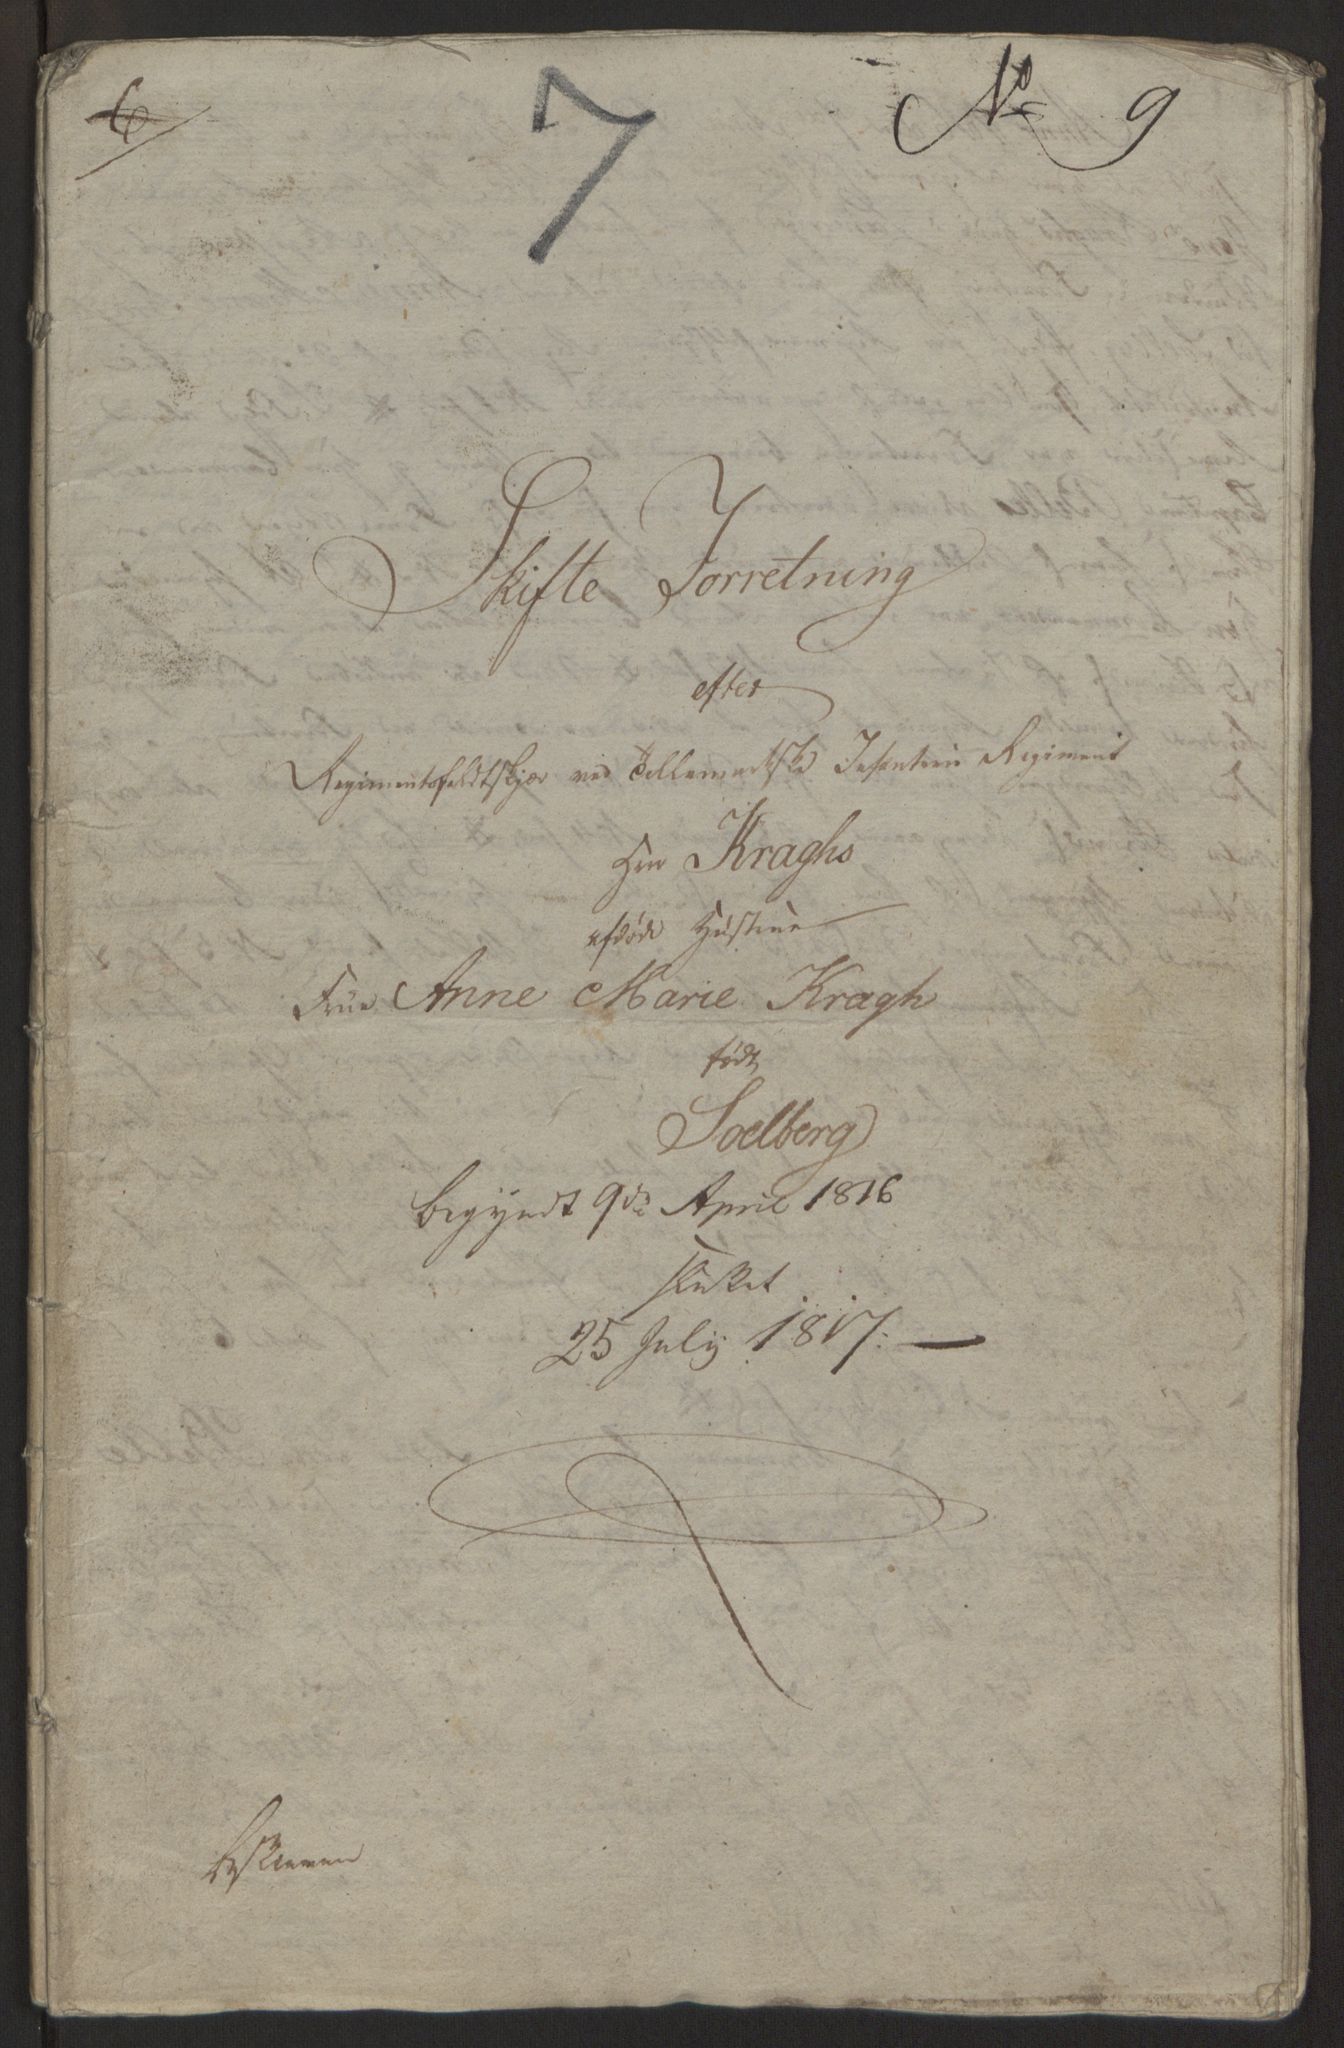 6
7
No 9
Skifte Forretning
efter
Regimentsfeldtskjær ved Tellemarkske Infanterie Regiment
Hr Kraghs
afdøde Hustrue
Frue Anne Marie Kragh
født
Soelberg
begyndt 9de April 1816
sluttet
25 July 1817.
Beskreven